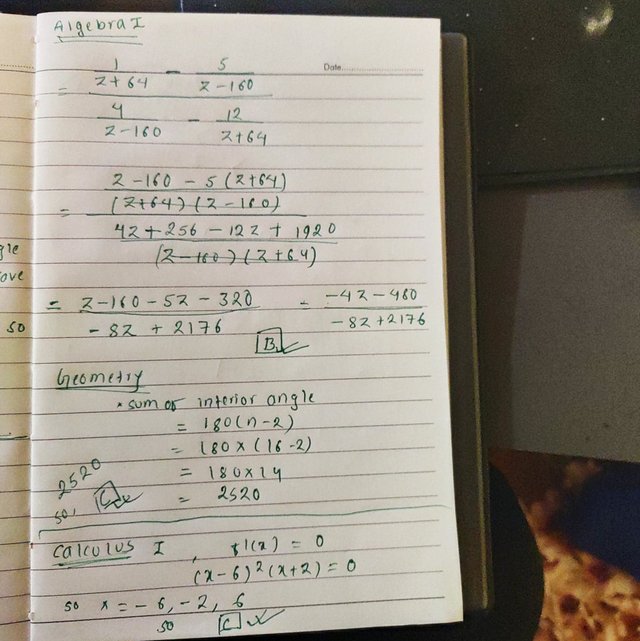 Algebra I
Date
= 1/(z+64) - 5/(z-160)
4/(z-160) - 12/(z+64)
= z-160 - 5(z+64)
(z+64)(z-160)
4z+256 - 12z + 1920
(z-160)(z+64)
= (z-160-5z-320)/(-8z+2176) = (-4z-480)/(-8z+2176)
B ✓
gle
ove
so
Geometry
* sum of interior angle
= 180(n-2)
= 180×(16-2)
= 180×14
= 2520
2520
so, C ✓
Calculus I, f'(x) = 0
(x-6)²(x+2)=0
so x = -6, -2, 6
so C ✓